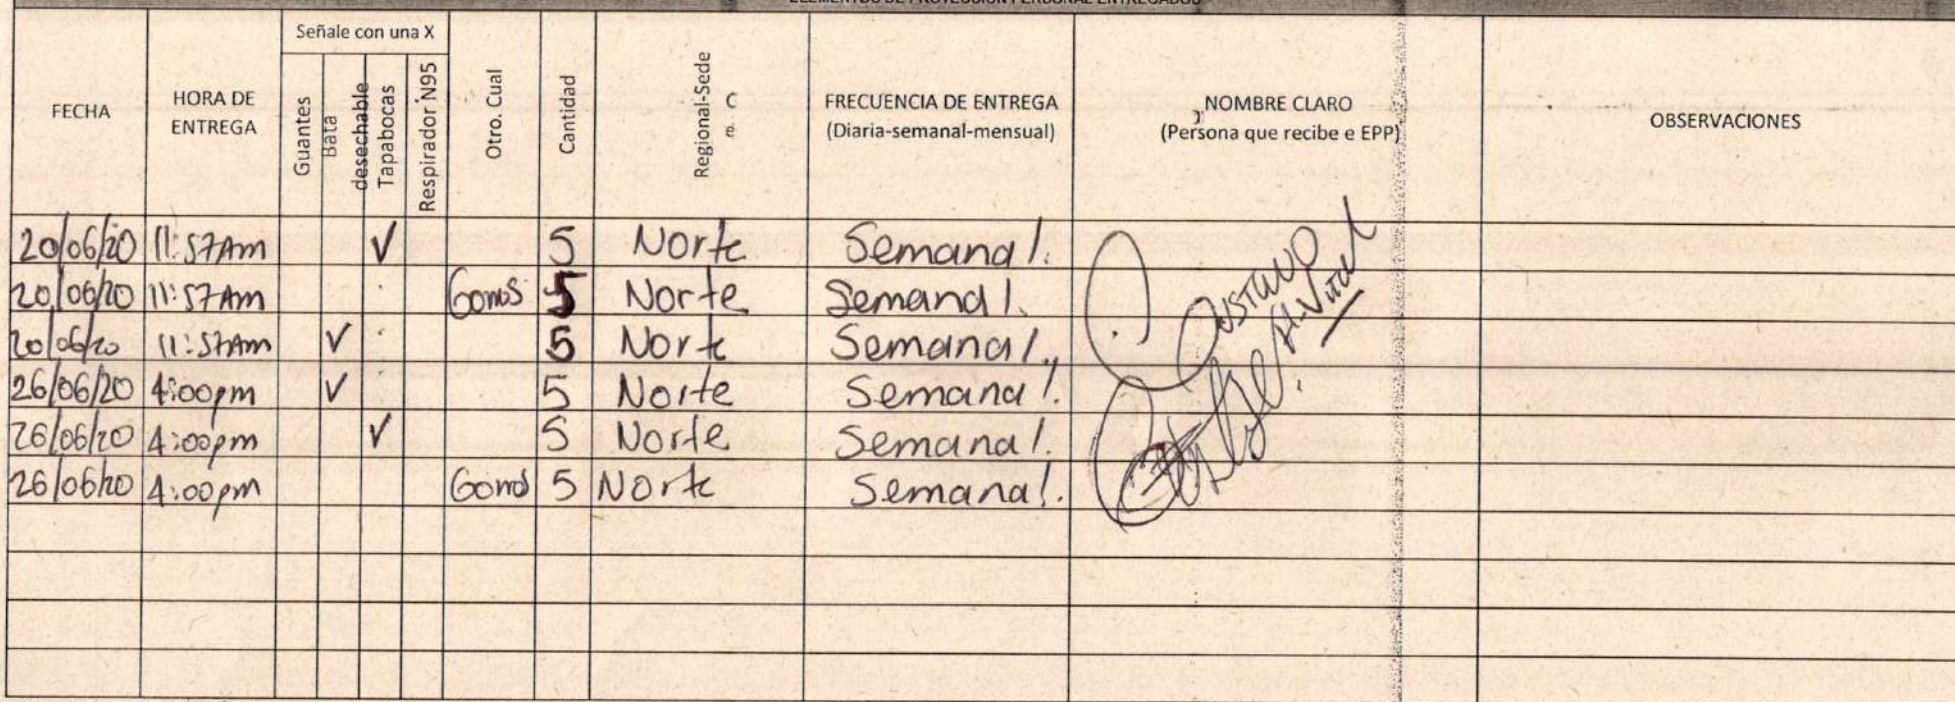 ELEMENTOS DE PROTECCION PERSONAL ENTREGADOS
FECHA
HORA DE ENTREGA
Señale con una X
Guantes
Bata desechable
Tapabocas
Respirador N95
Otro. Cual
Cantidad
Regional-Sede
FRECUENCIA DE ENTREGA
(Diaria-semanal-mensual)
NOMBRE CLARO
(Persona que recibe e EPP)
OBSERVACIONES
20/06/20 11:57Am √ 5 Norte Semanal.
20/06/20 11:57Am Gorros 5 Norte Semanal.
20/06/20 11:57Am √ 5 Norte Semanal.
26/06/20 4:00pm √ 5 Norte Semanal.
26/06/20 4:00pm √ 5 Norte Semanal.
26/06/20 4:00pm 5 Norte Semanal.
Gustavo
H. Vital